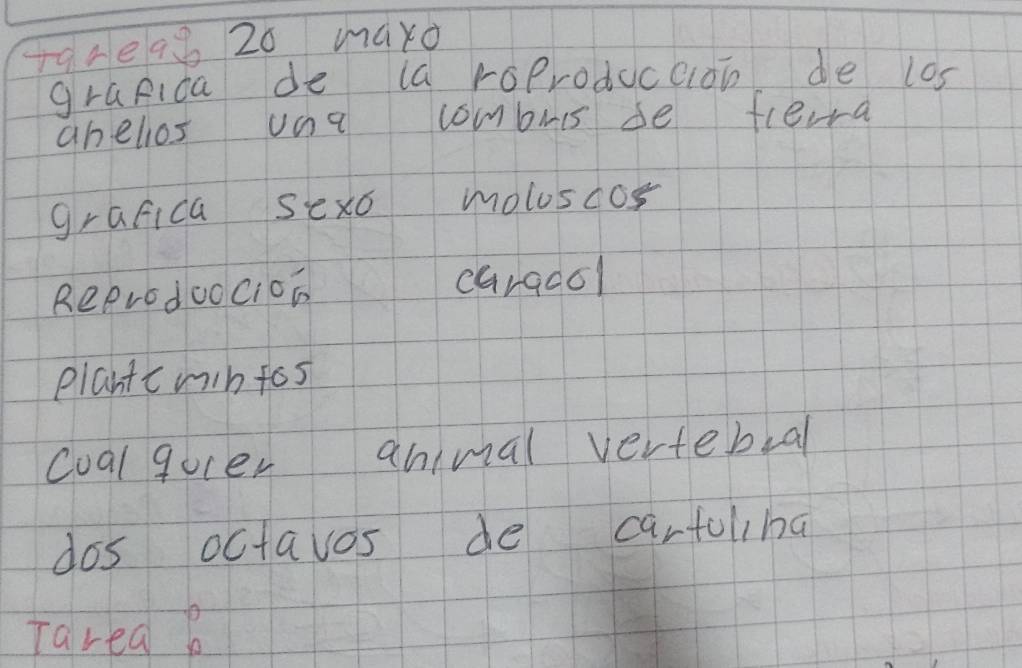 Tarea: 20 mayo
grafica de la roproduccion de los
anelios una lombris de tierra
grafica sexo moluscos
Reproduocion caracol
plantemintos
Cualquier animal vertebral
dos octavos de cartulina
Tarea: